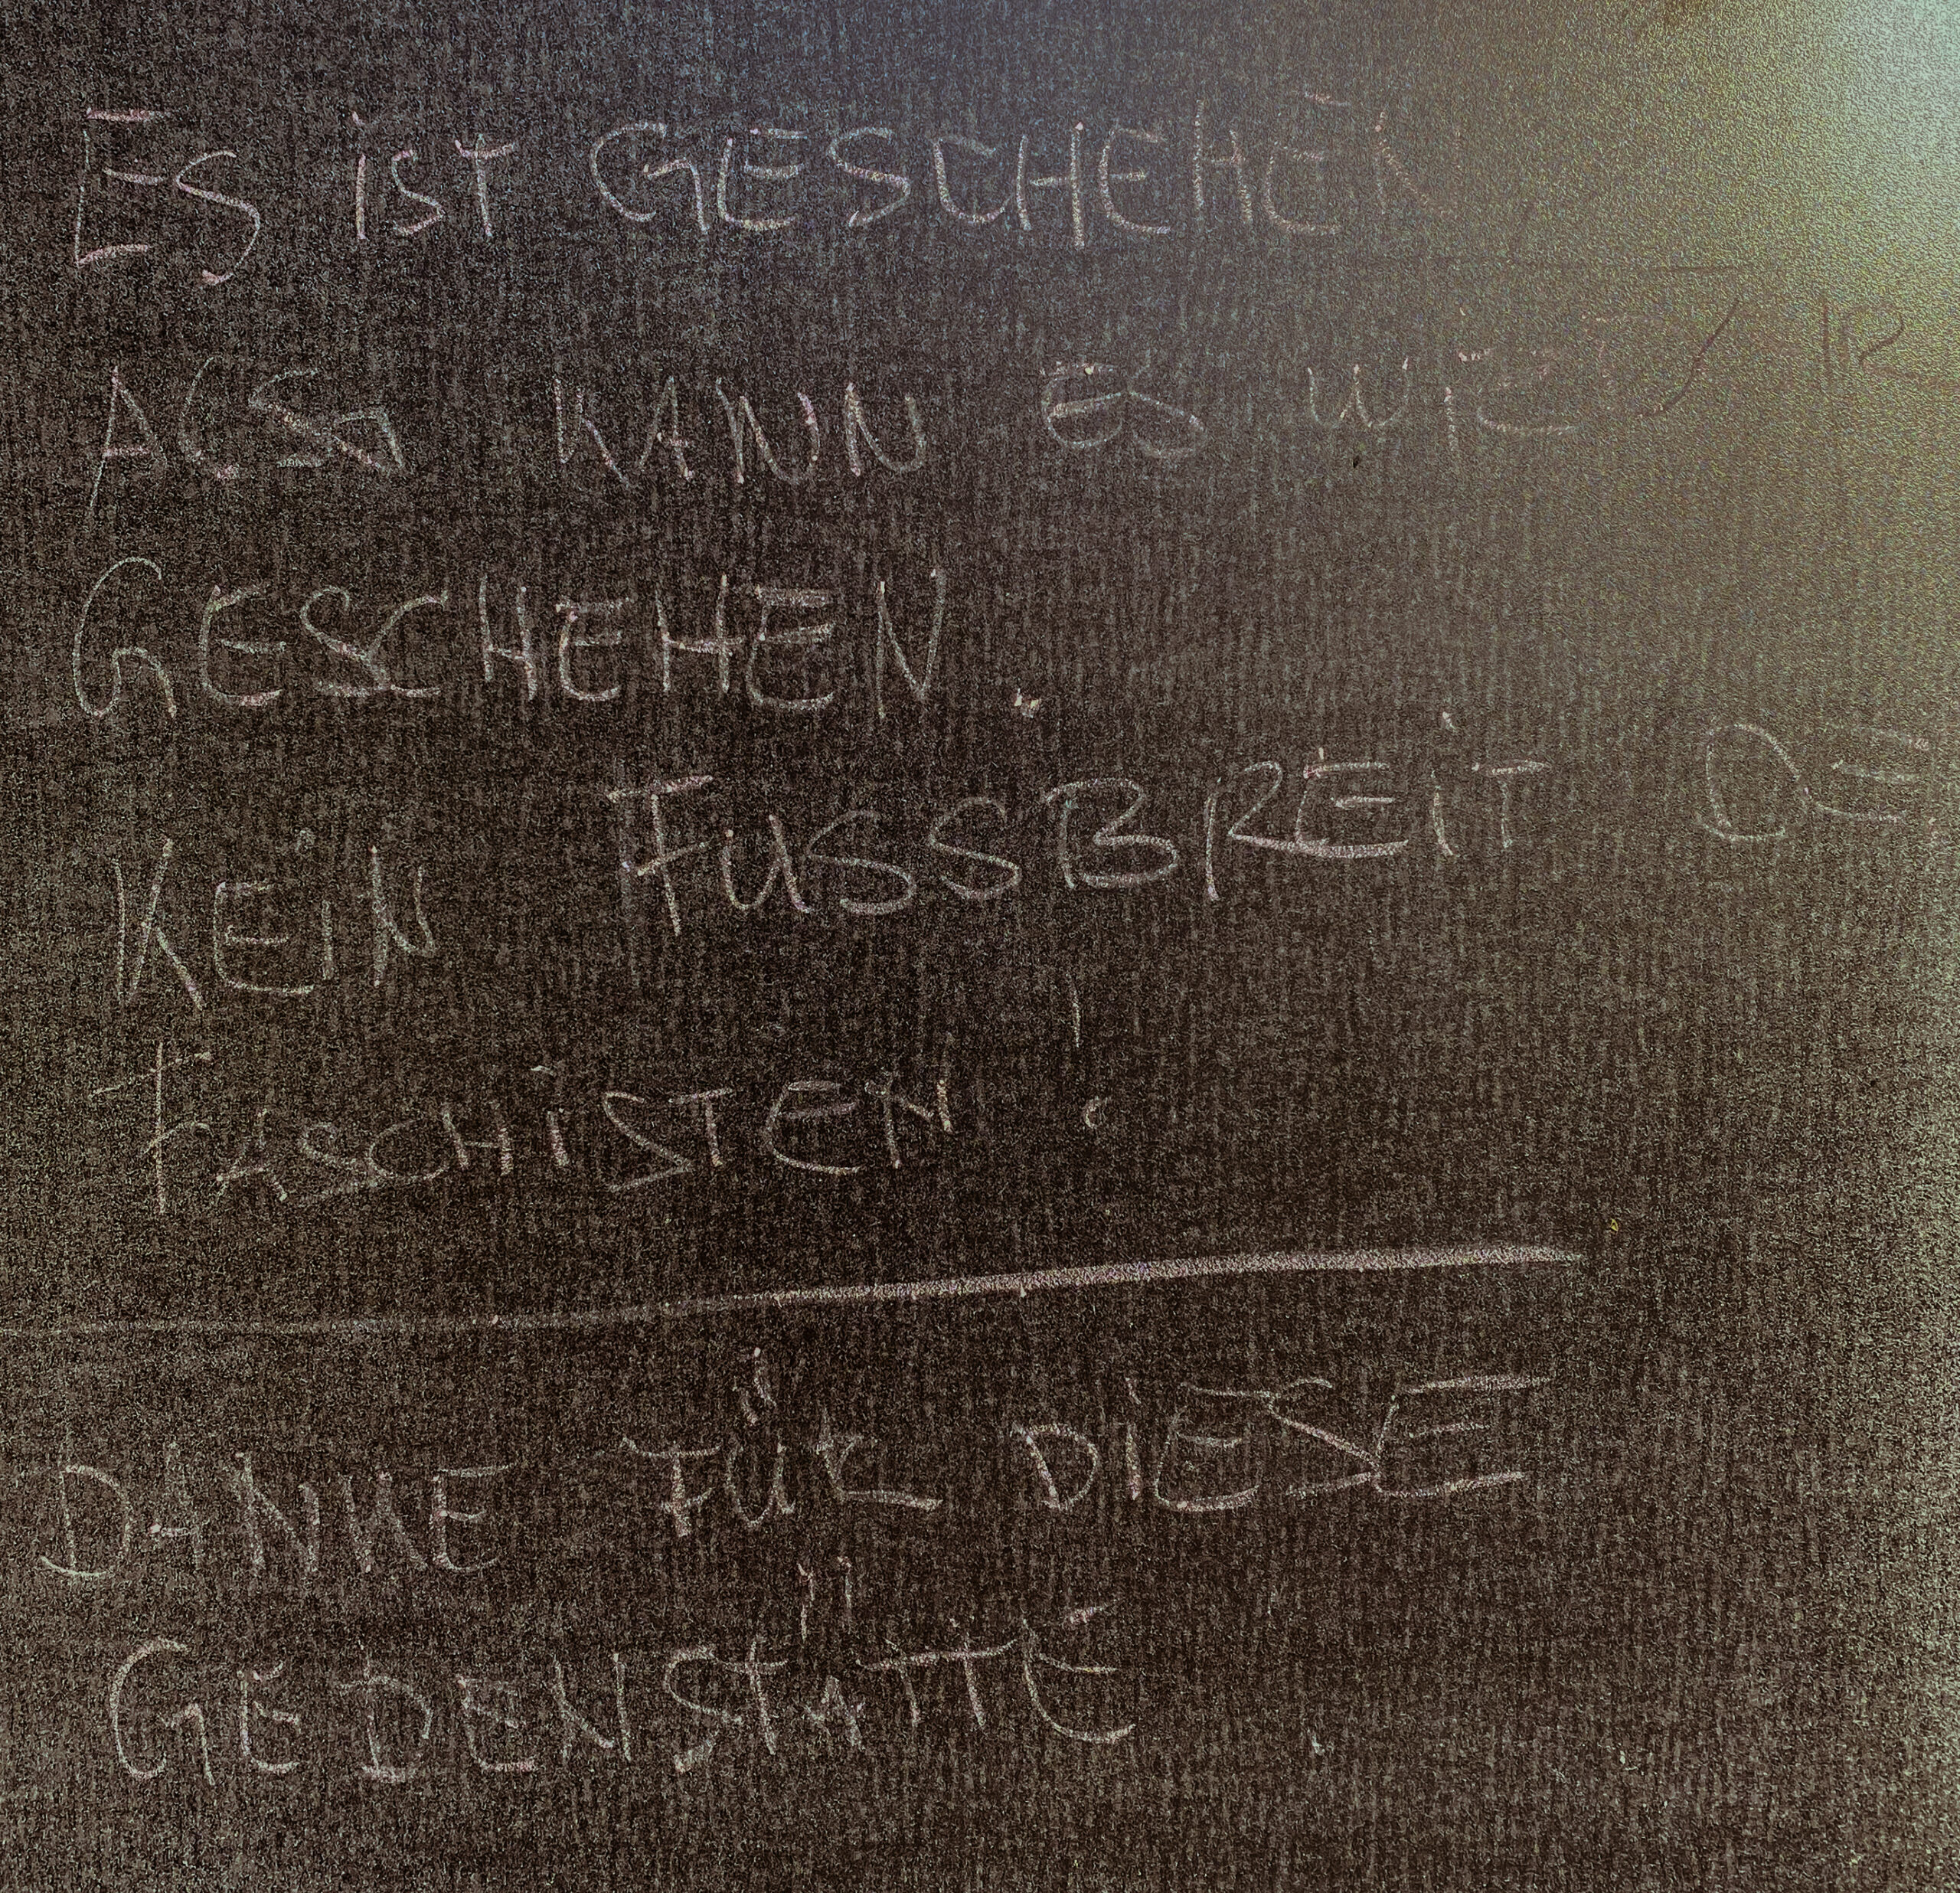 ES IST GESCHEHEN
ALSO KANN ES WIEDER
GESCHEHEN.
KEIN FUSSBREIT DE
FASCHISTEN!
DANKE FÜR DIESE
GEDENSTÄTTE